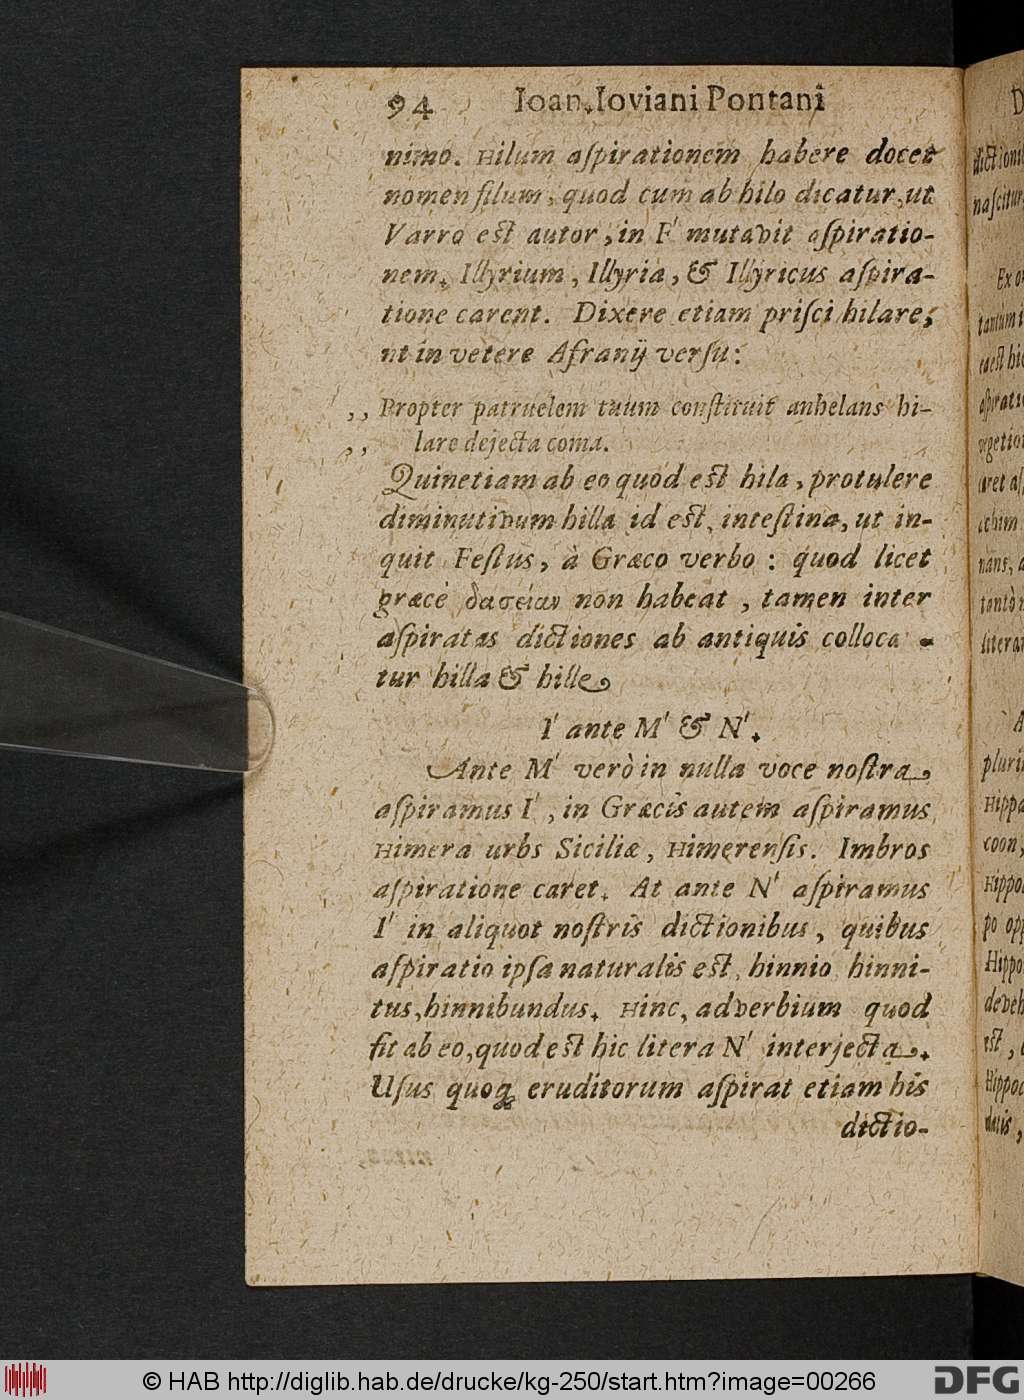 94 Ioan. Ioviani Pontani
nimo. Hilum aſpirationem habere docet
nomen filum, quod cum ab hilo dicatur, ut
Varro est autor, in F' mutavit aſpiratio-
nem. Illyrium, Illyria, & Illyricus aſpira-
tione carent. Dixere etiam priſci hilare,
nt in vetere Afranij verſu:
,, Propter patruelem tuum conſtituit anhelans hi-
,, lare dejecta coma.
Quinetiam ab eo quod est hila, protulere
diminutivum hilla id est, inteſtina, ut in-
quit Feſtus, à Græco verbo : quod licet
græcè δασείαν non habeat, tamen inter
aſpiratas dictiones ab antiquis colloca-
tur hilla & hille
I' ante M' & N'.
Ante M' verò in nulla voce noſtra,
aſpiramus I', in Græcis autem aſpiramus
Himera urbs Siciliæ, Himerenſis. Imbros
aſpiratione caret. At ante N' aſpiramus
I' in aliquot noſtris dictionibus, quibus
aſpiratio ipſa naturalis est, hinnio hinni-
tus, hinnibundus. Hinc, adverbium quod
fit ab eo, quod est hic litera N' interjecta.
Uſus quoq; eruditorum aſpirat etiam his
dictio-
D
dictioni
naſcitur
Ex o
tantum i
ea est hic
aſpirati
vegetio
caret aſ
nans, a
tantò
literar
A
pluri
Hippa
coon,
Hippo
po opp
Hippo
deveh
est,
Hippoc
datis,
© HAB http://diglib.hab.de/drucke/kg-250/start.htm?image=00266
DFG